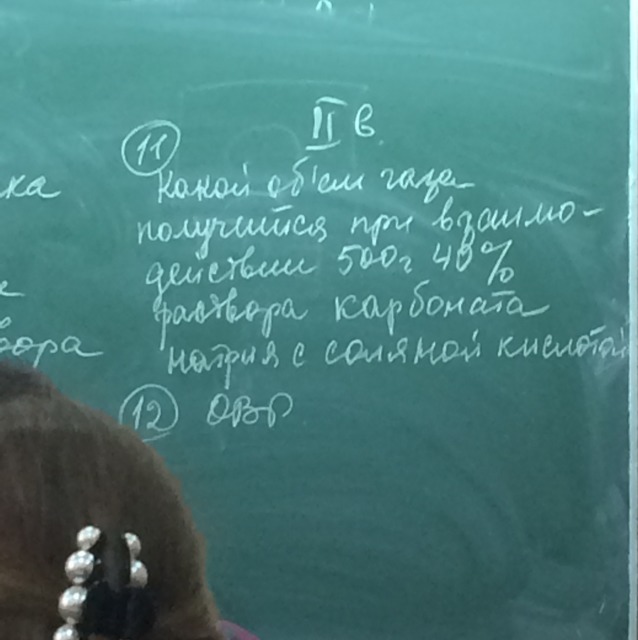 II в.
ка
11 Какой об'ем газа
получится при взаимо-
действии 500г 40%
раствора карбоната
вора
натрия с соляной кислотой
12 ОВР